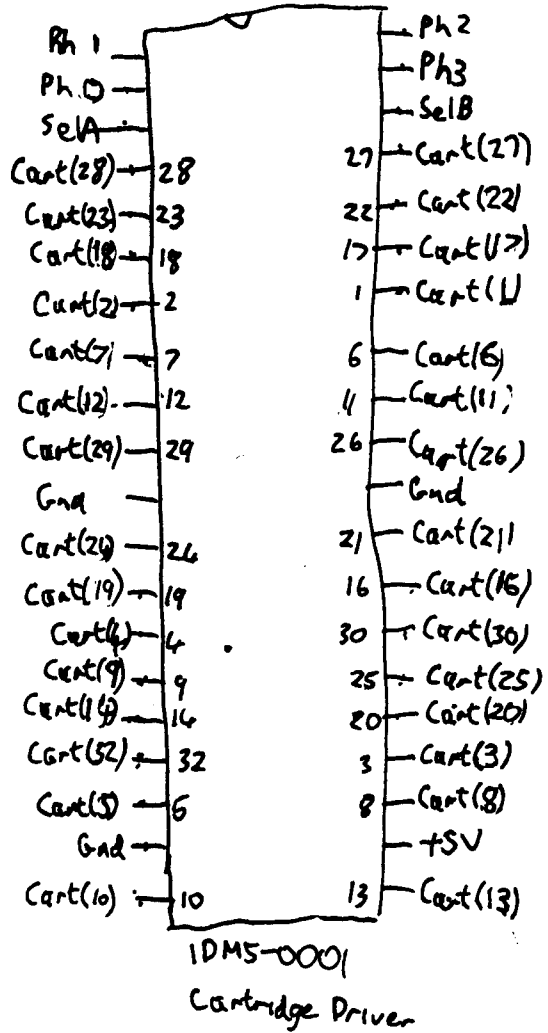 Ph 1
Ph 0
SelA
Cart(28) 28
Cart(23) 23
Cart(18) 18
Cart(2) 2
Cart(7) 7
Cart(12) 12
Cart(29) 29
Gnd
Cart(24) 24
Cart(19) 19
Cart(4) 4
Cart(9) 9
Cart(14) 14
Cart(32) 32
Cart(5) 5
Gnd
Cart(10) 10
Ph2
Ph3
SelB
27 Cart(27)
22 Cart(22)
17 Cart(17)
1 Cart(1)
6 Cart(6)
11 Cart(11)
26 Cart(26)
Gnd
21 Cart(21)
16 Cart(16)
30 Cart(30)
25 Cart(25)
20 Cart(20)
3 Cart(3)
8 Cart(8)
+5V
13 Cart(13)
IDM5-0001
Cartridge Driver